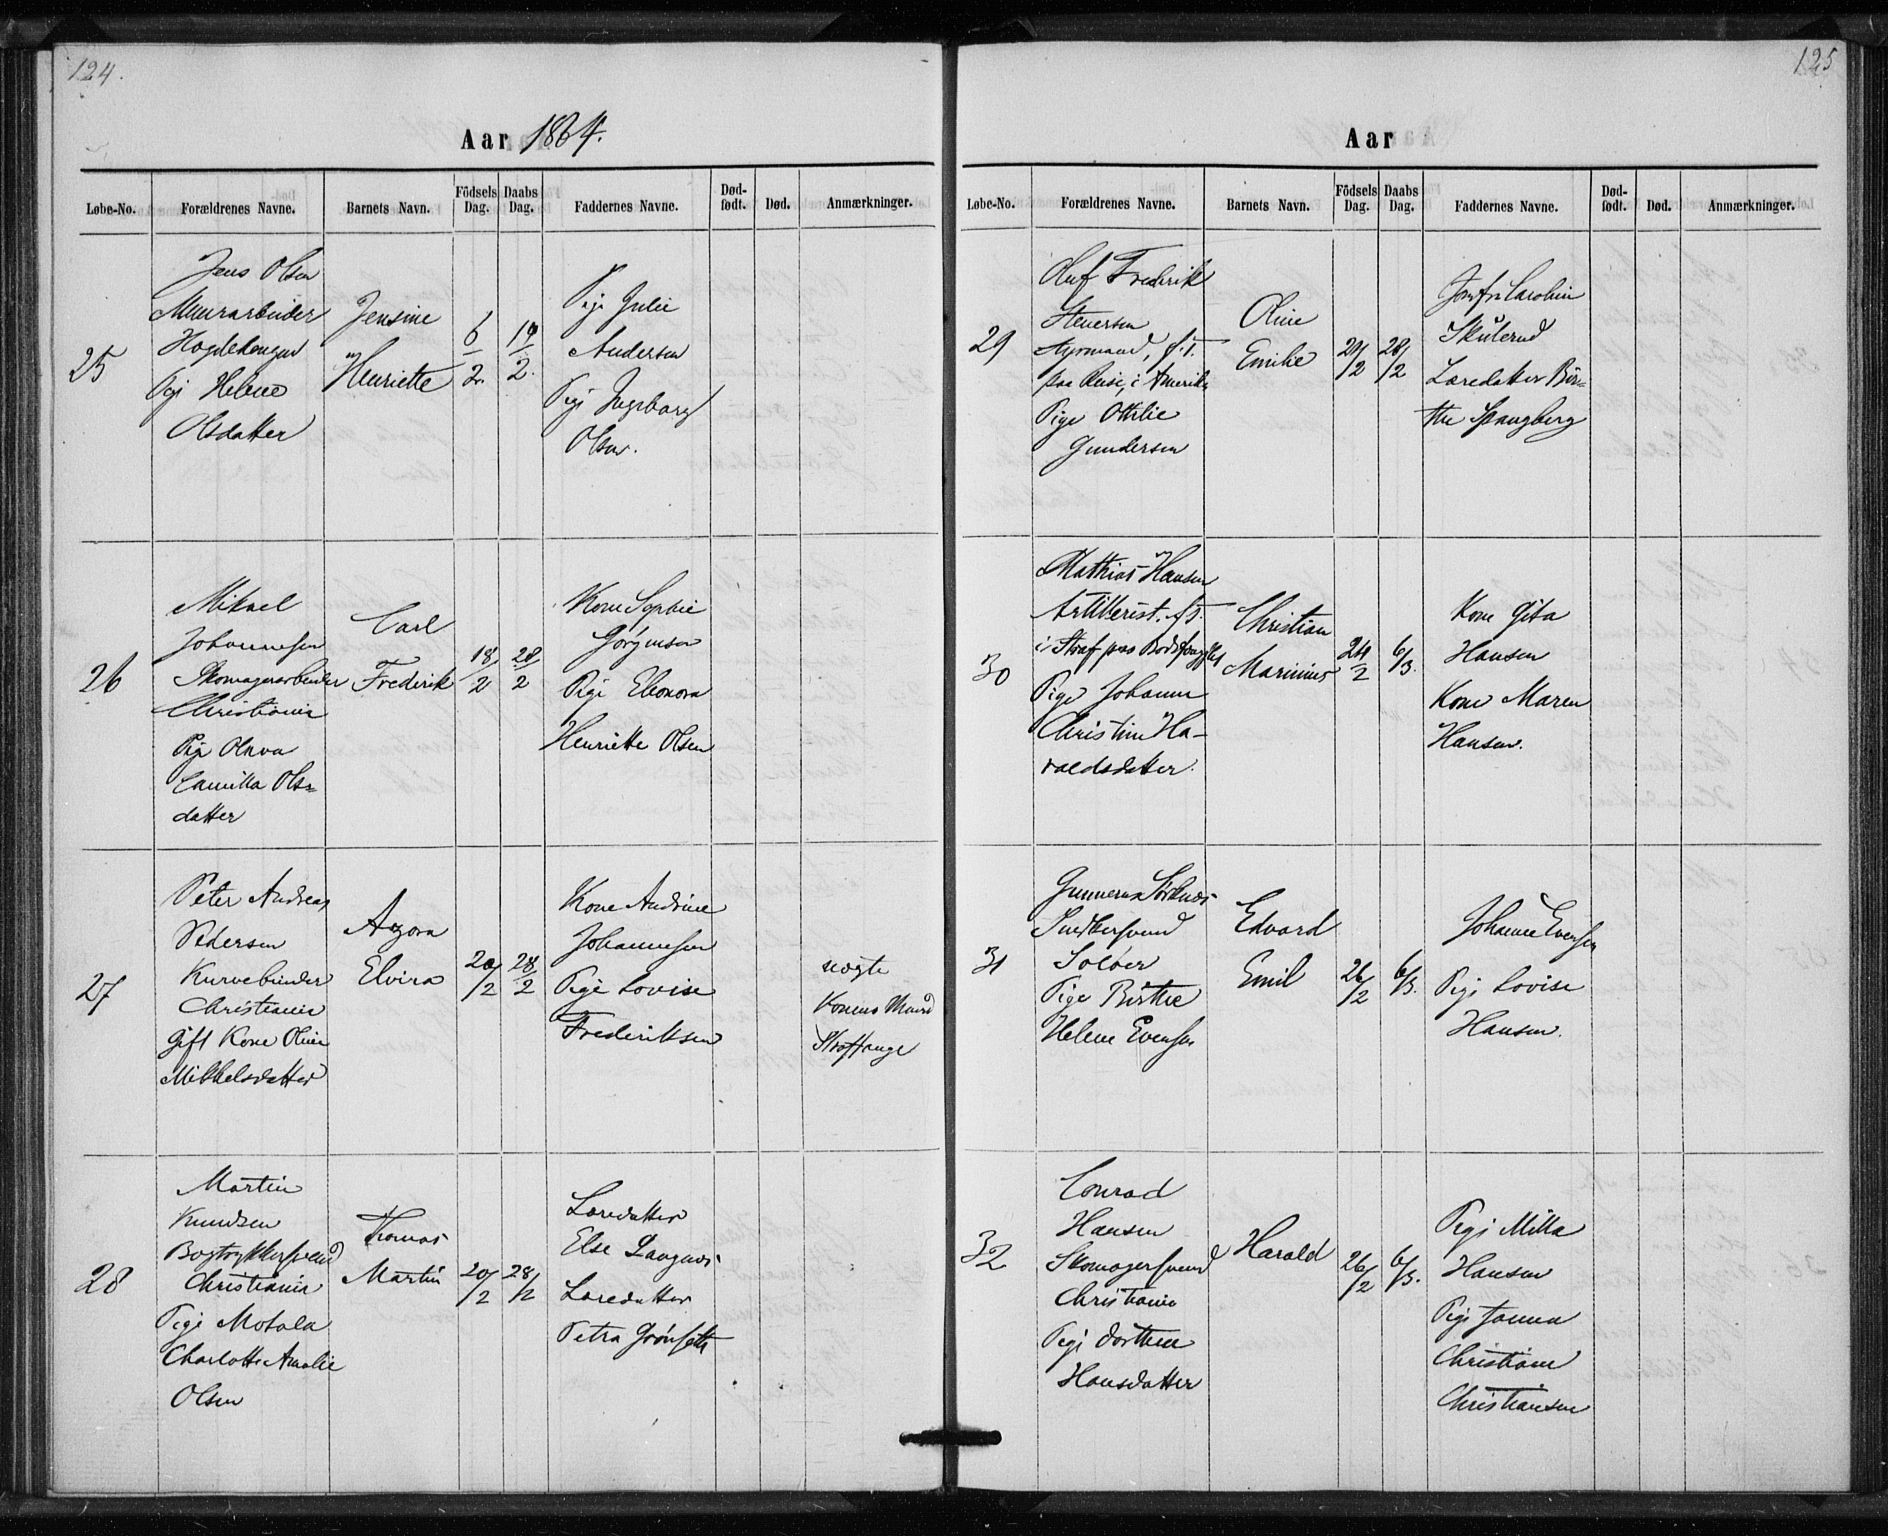 124.
Aar 1864.
Løbe-No. Forældrenes Navne. Barnets Navn. Födsels Dag. Daabs Dag. Faddernes Navne. Død-født. Død. Anmærkninger.
25
Jens Olsen
Muurarbeider
Pige Helene
Olsdatter
Jensine
Henriette
6/2.
14/2.
Pige Julie
Andersen
Pige Ingeborg
Olsen.
26
Mikael
Johannesen
Skomagerarbeider
Christiania
Pige Olava
Camilla Ols=
datter
Carl
Frederik
18/2
28/2
Kone Sophie
Jörgensen
Pige Eleonora
Henriette Olsen
27
Peter Andreas
Pedersen
Kurvebinder
Christiania
Gift Kone Oline
Mikkelsdatter
Agora
Elvira
20/2
28/2
Kone Andrine
Johannesen
Pige Lovise
Frederiksen
uægte
Konens Mand
Straffange
28
Martin
Knudsen
Bogtrykkersvend
Christiania
Pige Motala
Charlotte Amalie
Olsen
Thomas
Martin
20/2
28/2
Læredatter
Else Langnæs
Læredatter
Petra Grønseth
125
Aar
Løbe-No. Forældrenes Navne. Barnets Navn. Födsels Dag. Daabs Dag. Faddernes Navne. Død-født. Død. Anmærkninger.
29
Oluf Frederik
Stenersen
Styrmand, f. T.
paa Reise, i Amerika
Pige Othilie
Gundersen
Oline
Emilie
21/2
28/2
Jomfru Caroline
Skulerud
Læredatter Bir=
the Spangberg
30
Mathias Hansen
Artillerist. f. T.
i Straf paa Bodsfængslet
Pige Johanne
Christine Ha-
raldsdatter.
Christian
Marinius
24/2
6/3.
Kone Gita
Hansen
Kone Maren
Hansen.
31
Snedkersvend
Soløer
Pige Birthe
Helene Evensen
Edvard
Emil
26/2
6/3.
Johanne Evensen
Pige Lovise
Hansen.
32
Conrad
Hansen
Skomagersvend
Christiania
Pige Dorthea
Hansdatter
Harald
26/2
6/3.
Pige Milla
Hansen
Pige Janna
Christiane
Christiansen